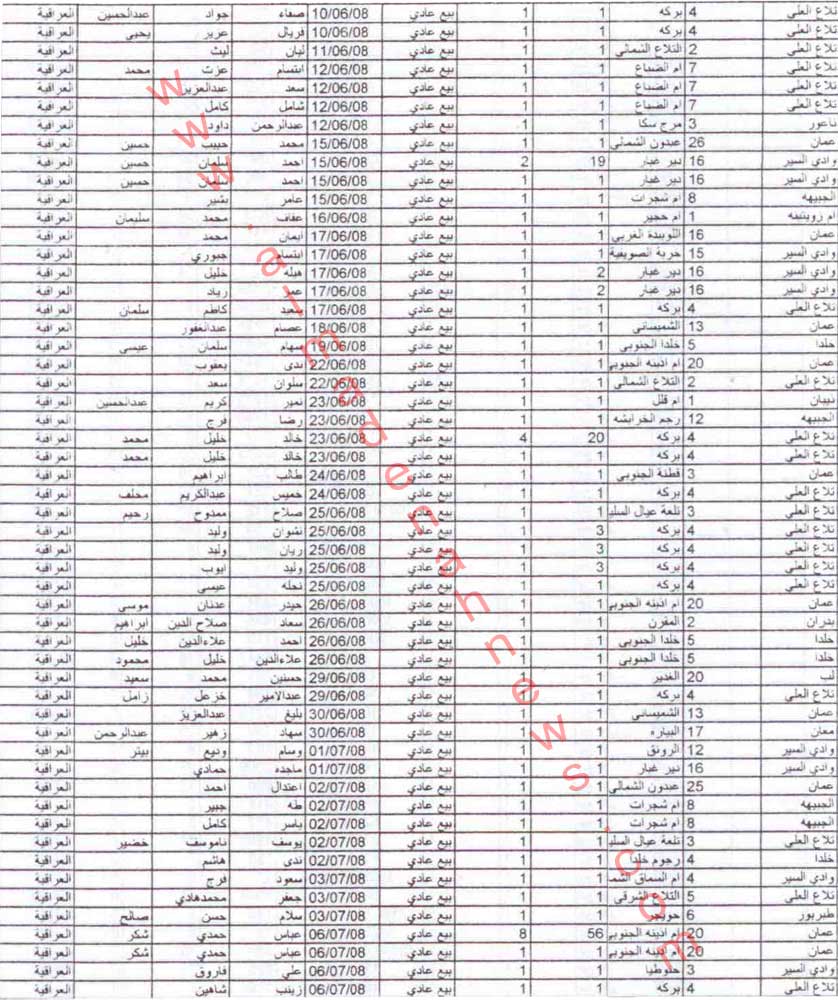 تلاع العلي 4 بركه 1 1 بيع عادي 10/06/08 صفاء جواد عبدالحسين العراقية
تلاع العلي 4 بركه 1 1 بيع عادي 10/06/08 فريال عزيز يحيى العراقية
تلاع العلي 2 التلاع الشمالي 1 1 بيع عادي 11/06/08 ليان ليث العراقية
تلاع العلي 7 ام الضباع 1 1 بيع عادي 12/06/08 ابتسام عزت محمد العراقية
تلاع العلي 7 ام الضباع 1 1 بيع عادي 12/06/08 سعد عبدالعزيز العراقية
تلاع العلي 7 ام الضباع 1 1 بيع عادي 12/06/08 شامل كامل العراقية
ناعور 3 مرج سكا 1 1 بيع عادي 12/06/08 عبدالرحمن داود العراقية
عمان 26 عبدون الشمالي 1 1 بيع عادي 15/06/08 محمد حبيب حسين العراقية
وادي السير 16 دير غبار 19 2 بيع عادي 15/06/08 احمد سلمان حسين العراقية
وادي السير 16 دير غبار 1 1 بيع عادي 15/06/08 احمد سلمان حسين العراقية
الجبيهه 8 ام شجرات 1 1 بيع عادي 15/06/08 عامر بشير العراقية
ام زويتينه 1 ام حجير 1 1 بيع عادي 16/06/08 عفاف محمد سليمان العراقية
عمان 16 اللويبدة الغربي 1 1 بيع عادي 17/06/08 ايمان محمد العراقية
وادي السير 15 خربة الصويفية 1 1 بيع عادي 17/06/08 ابتسام جبوري العراقية
وادي السير 16 دير غبار 2 1 بيع عادي 17/06/08 هيله خليل العراقية
وادي السير 16 دير غبار 2 1 بيع عادي 17/06/08 عمر زياد العراقية
تلاع العلي 4 بركه 1 1 بيع عادي 17/06/08 سعيد كاظم سلمان العراقية
عمان 13 الشميساني 1 1 بيع عادي 18/06/08 عصام عبدالغفور العراقية
خلدا 5 خلدا الجنوبي 1 1 بيع عادي 19/06/08 سهام سلمان عيسى العراقية
عمان 20 ام اذينه الجنوبي 1 1 بيع عادي 22/06/08 ندى يعقوب العراقية
تلاع العلي 2 التلاع الشمالي 1 1 بيع عادي 22/06/08 سلوان سعد العراقية
ذيبان 1 ام قلل 1 1 بيع عادي 23/06/08 نمير كريم عبدالحسين العراقية
الجبيهه 12 رجم الخرابشه 1 1 بيع عادي 23/06/08 رضا فرج العراقية
تلاع العلي 4 بركه 20 4 بيع عادي 23/06/08 خالد خليل محمد العراقية
تلاع العلي 4 بركه 1 1 بيع عادي 23/06/08 خالد خليل محمد العراقية
عمان 3 قطنة الجنوبي 1 1 بيع عادي 24/06/08 طالب ابراهيم العراقية
تلاع العلي 4 بركه 1 1 بيع عادي 24/06/08 خميس عبدالكريم مخلف العراقية
تلاع العلي 3 تلعة عيال السلي 1 1 بيع عادي 25/06/08 صلاح ممدوح رحيم العراقية
تلاع العلي 4 بركه 3 1 بيع عادي 25/06/08 نشوان وليد العراقية
تلاع العلي 4 بركه 3 1 بيع عادي 25/06/08 ريان وليد العراقية
تلاع العلي 4 بركه 3 1 بيع عادي 25/06/08 وليد ايوب العراقية
تلاع العلي 4 بركه 1 1 بيع عادي 25/06/08 نخله عيسى العراقية
عمان 20 ام اذينه الجنوبي 1 1 بيع عادي 26/06/08 حيدر عدنان موسى العراقية
بدران 2 المقرن 1 1 بيع عادي 26/06/08 سعاد صلاح الدين ابراهيم العراقية
خلدا 5 خلدا الجنوبي 1 1 بيع عادي 26/06/08 احمد علاءالدين خليل العراقية
خلدا 5 خلدا الجنوبي 1 1 بيع عادي 26/06/08 علاءالدين خليل محمود العراقية
لب 20 الغدير 1 1 بيع عادي 29/06/08 حسنين محمد سعيد العراقية
تلاع العلي 4 بركه 1 1 بيع عادي 29/06/08 عبدالامير خزعل زامل العراقية
عمان 13 الشميساني 1 1 بيع عادي 30/06/08 بليغ عبدالعزيز العراقية
معان 17 البياره 1 1 بيع عادي 30/06/08 سهاد زهير عبدالرحمن العراقية
وادي السير 12 الرونق 1 1 بيع عادي 01/07/08 وسام وديع بيتر العراقية
وادي السير 16 دير غبار 1 1 بيع عادي 01/07/08 ماجده حمادي العراقية
عمان 25 عبدون الشمالي 1 1 بيع عادي 02/07/08 اعتدال احمد العراقية
الجبيهه 8 ام شجرات 1 1 بيع عادي 02/07/08 طه جبير العراقية
الجبيهه 8 ام شجرات 1 1 بيع عادي 02/07/08 ياسر كامل العراقية
تلاع العلي 3 تلعة عيال السلي 1 1 بيع عادي 02/07/08 يوسف ناموسف خضير العراقية
خلدا 4 رجوم خلدا 1 1 بيع عادي 02/07/08 ندى هاشم العراقية
وادي السير 4 ام السماق الشم 1 1 بيع عادي 03/07/08 سعود فرج العراقية
تلاع العلي 5 التلاع الشرقي 1 1 بيع عادي 03/07/08 جعفر محمدهادي العراقية
طبربور 6 حويجر 1 1 بيع عادي 03/07/08 سلام حسن صالح العراقية
عمان 20 ام اذينه الجنوبي 56 8 بيع عادي 06/07/08 عباس حمدي شكر العراقية
عمان 20 ام اذينه الجنوبي 1 1 بيع عادي 06/07/08 عباس حمدي شكر العراقية
وادي السير 3 حنوطيا 1 1 بيع عادي 06/07/08 علي فاروق العراقية
تلاع العلي 4 بركه 1 1 بيع عادي 06/07/08 زينب شاهين العراقية
www.almadenahnews.com